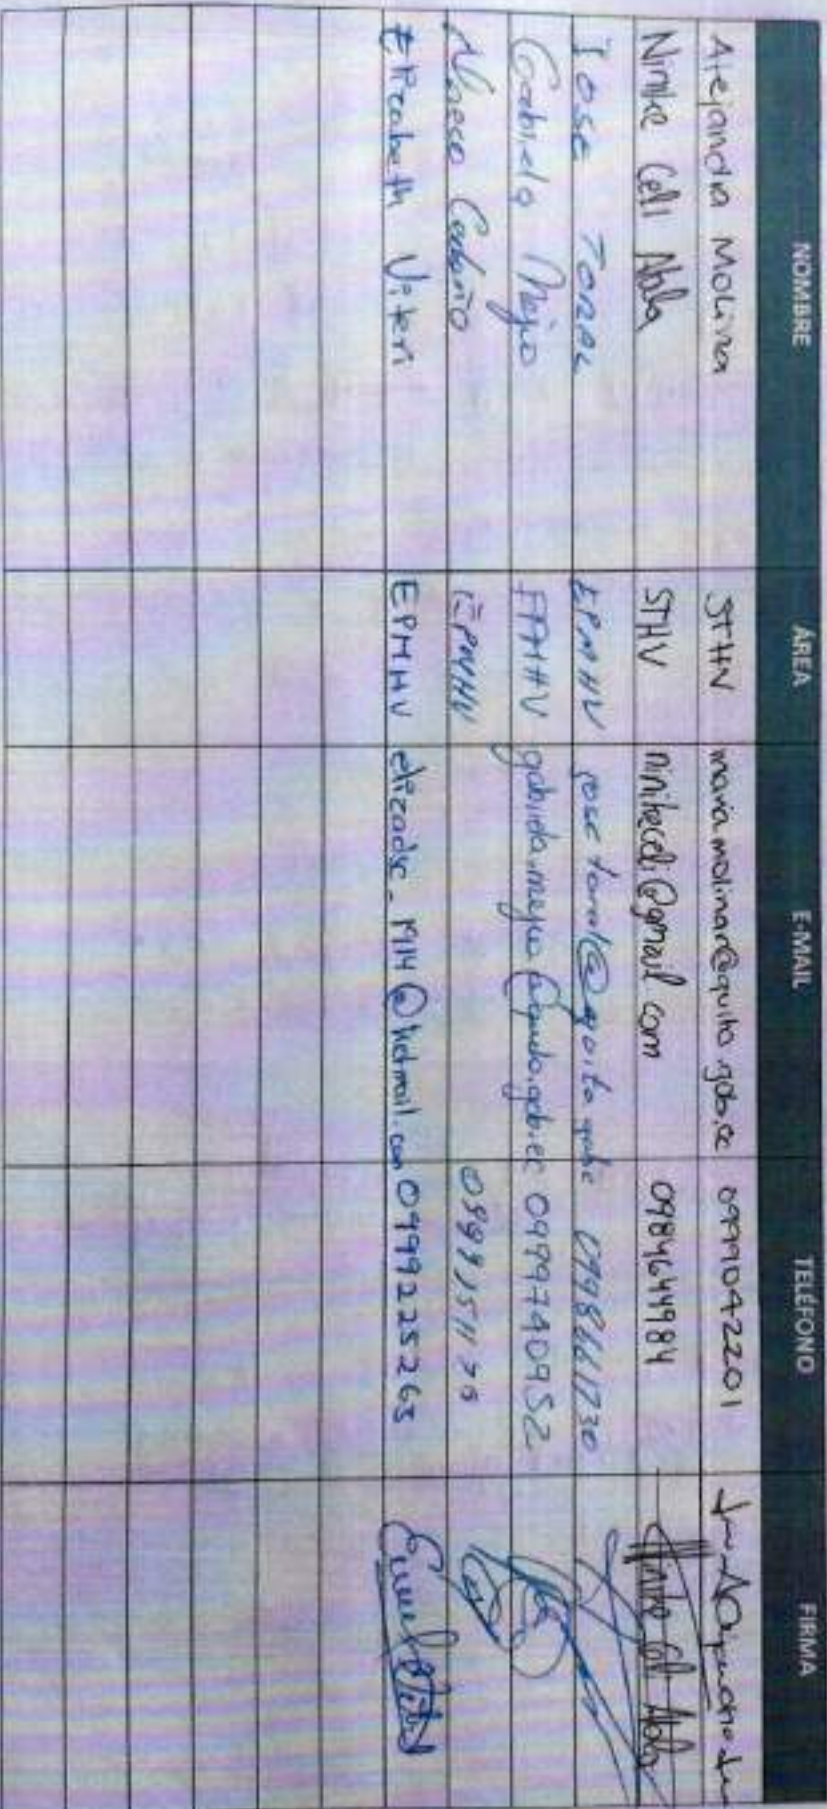 NOMBRE ÁREA E-MAIL TELÉFONO FIRMA
Alejandra Molina STHV maria.molinar@quito.gob.ec 0999042201
Ninike Celi Abala STHV ninikeceli@gmail.com 0984644984
Jose Toral EPMHV jose.toral@quito.gob.ec 0998661730
Gabriela Mejia EPMHV 0999740952
Cedeño EPMHV
Elizabeth Viteri EPMHV @hotmail.com 0999225263